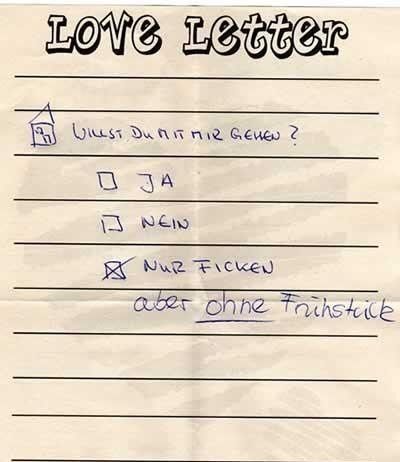 LOVE LETTER
WILLST DU MIT MIR GEHEN?
JA
NEIN
NUR FICKEN
aber ohne Frühstück